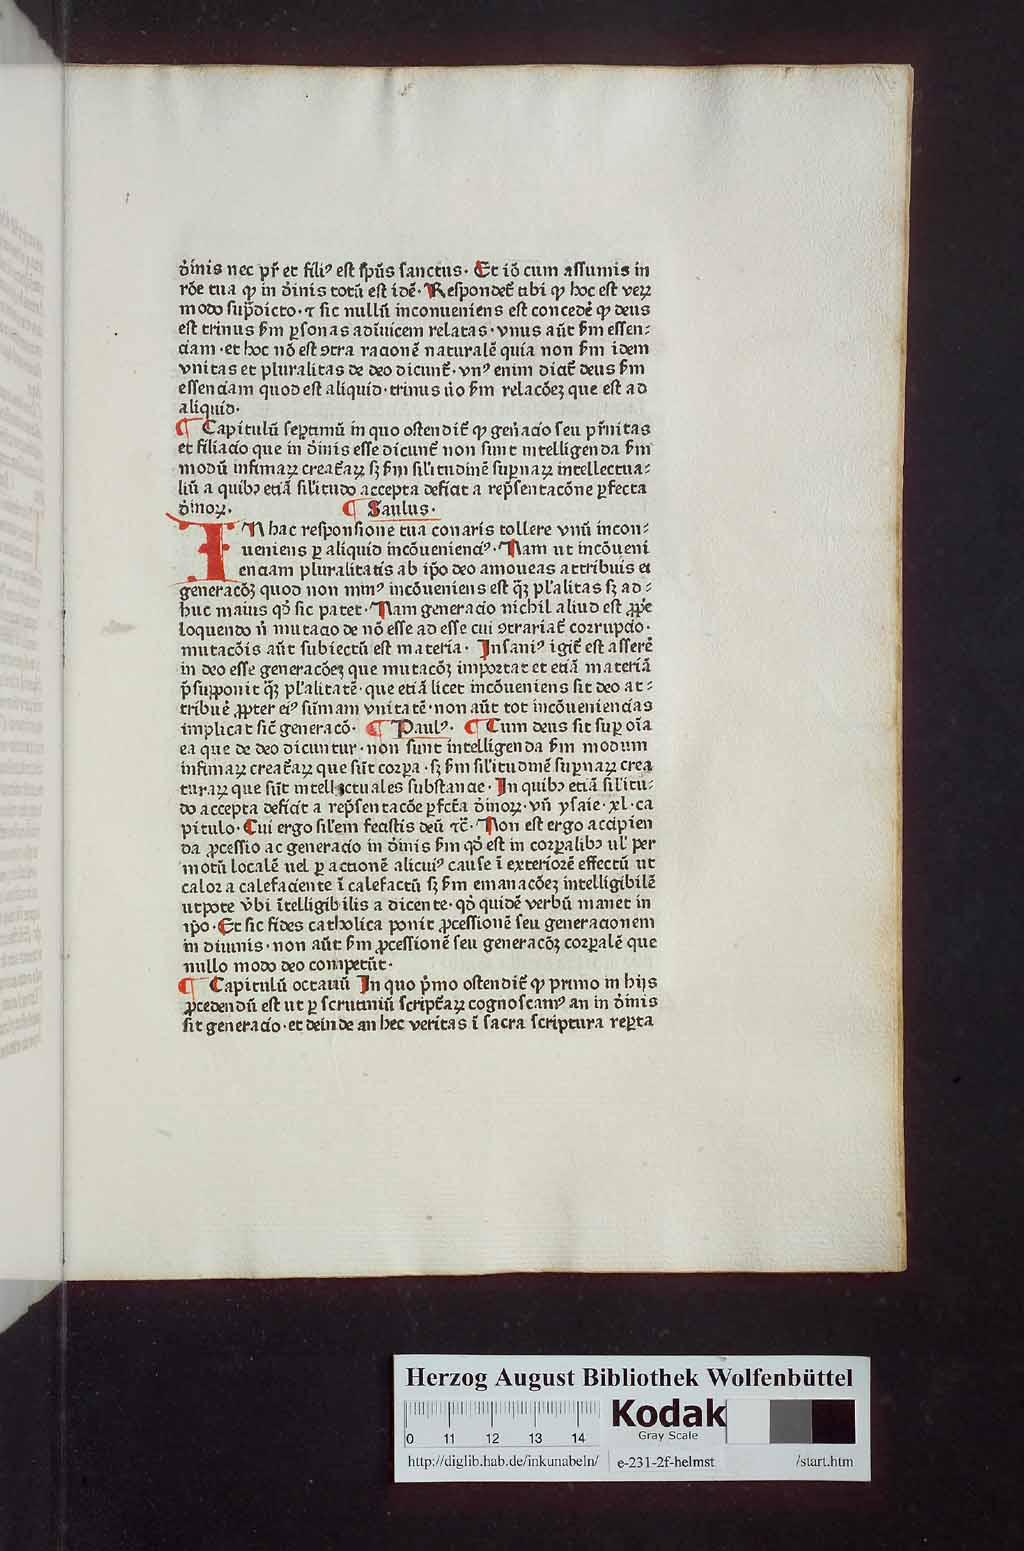 diuīnis nec pr̄ et filiꝰ est sp̄us sanctus· Et iō cum assumis in
rōe tua ꝙ in dīnis totū est idē· Respondet᷑ tibi ꝙ hoc est veꝝ
modo sup̄dicto· ⁊ sic nullū inconueniens est concedē ꝙ deus
est trinus ẜm ꝑsonas adiuicem relatas· vnus aūt ẜm essen⸗
ciam· et hoc nō est ꝯtra racionē naturalē quia non ẜm idem
vnitas et pluralitas de deo dicunt᷑· vnꝰ enim dicit᷑ deus ẜm
essenciam quod est aliquid· trinus ūo ẜm relacōeꝫ que est ad
aliquid·
¶ Capitulū septimū in quo ostendit᷑ ꝙ gen̄acio seu pr̄nitas
et filiacio que in dīnis esse dicunt᷑ non sunt intelligenda ẜm
modū infimaꝝ creat᷑aꝝ sꝫ ẜm sil'itudinē suꝑnaꝝ intellectua⸗
liū a quibꝫ etiā sil'itudo accepta deficit a rep̄sentacōne ꝑfecta
dīnoꝝ. ¶ Saulus·
IN hac responsione tua conaris tollere vnū incon⸗
ueniens ꝑ aliquid incōueniencꝰ· Nam ut incōueni
enciam pluralitatis ab ip̄o deo amoueas attribuis ei
generacōꝫ quod non minꝰ incōueniens est q̄ꝫ pl'alitas sꝫ ad⸗
huc maius qd̄ sic patet· Nam generacio nichil aliud est ꝓpe
loquendo n̄ mutacio de nō esse ad esse cui ꝯtrariat᷑ corrupcio·
mutacōis aūt subiectū est materia· Insaniꝰ igit᷑ est asserē
in deo esse generacōeꝫ que mutacōꝫ importat et etiā materiā
p̄supponit q̄ꝫ pl'alitatē· que etiā licet incōueniens sit deo at⸗
tribuē ꝓpter eiꝰ sūmam vnitatē· non aūt tot incōueniencias
implicat sic̄ generacō· ¶ Paulꝰ. ¶ Cum deus sit suꝑ oīa
ea que de deo dicuntur· non sunt intelligenda ẜm modum
infimaꝝ creat᷑aꝝ que sūt corꝑa· sꝫ ẜm sil'itudinē suꝑnaꝝ crea
turaꝝ que sūt intellectuales substancie· In quibꝫ etiā sil'itu⸗
do accepta deficit a rep̄sentacōe ꝑfct̄a dīnoꝝ· vn̄ ysaie· xl· ca
pitulo· Cui ergo sil'em fecistis deū ⁊c̄· Non est ergo accipien
da ꝓcessio ac generacio in dīnis ẜm qd̄ est in corꝑalibꝫ ul' per
motū localē uel ꝑ actionē alicuiꝰ cause ī exteriorē effectū ut
calor a calefaciente ī calefactū sꝫ ẜm emanacōeꝫ intelligibilē
utpote v̄bi ītelligibilis a dicente· qd̄ quidē verbū manet in
ip̄o· Et sic fides catholica ponit ꝓcessionē seu generacionem
in diuinis· non aūt ẜm ꝓcessionē seu generacōꝫ corꝑalē que
nullo modo deo competūt·
¶ Capitulū octauū In quo p̄mo ostendit᷑ ꝙ primo in hijs
ꝓcedendū est ut ꝑ scrutiniū script᷑aꝝ cognoscamꝰ an in dīnis
sit generacio· et deinde an hec veritas ī sacra scriptura reꝑta
Herzog August Bibliothek Wolfenbüttel
0 11 12 13 14
Kodak
Gray Scale
http://diglib.hab.de/inkunabeln/ e-231-2f-helmst /start.htm